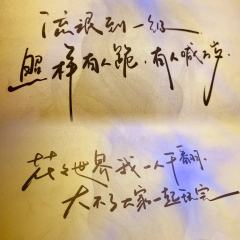 流氓到一级
照样有人跪，有人喊大声
花花世界我一人干翻
大不了大家一起玩完